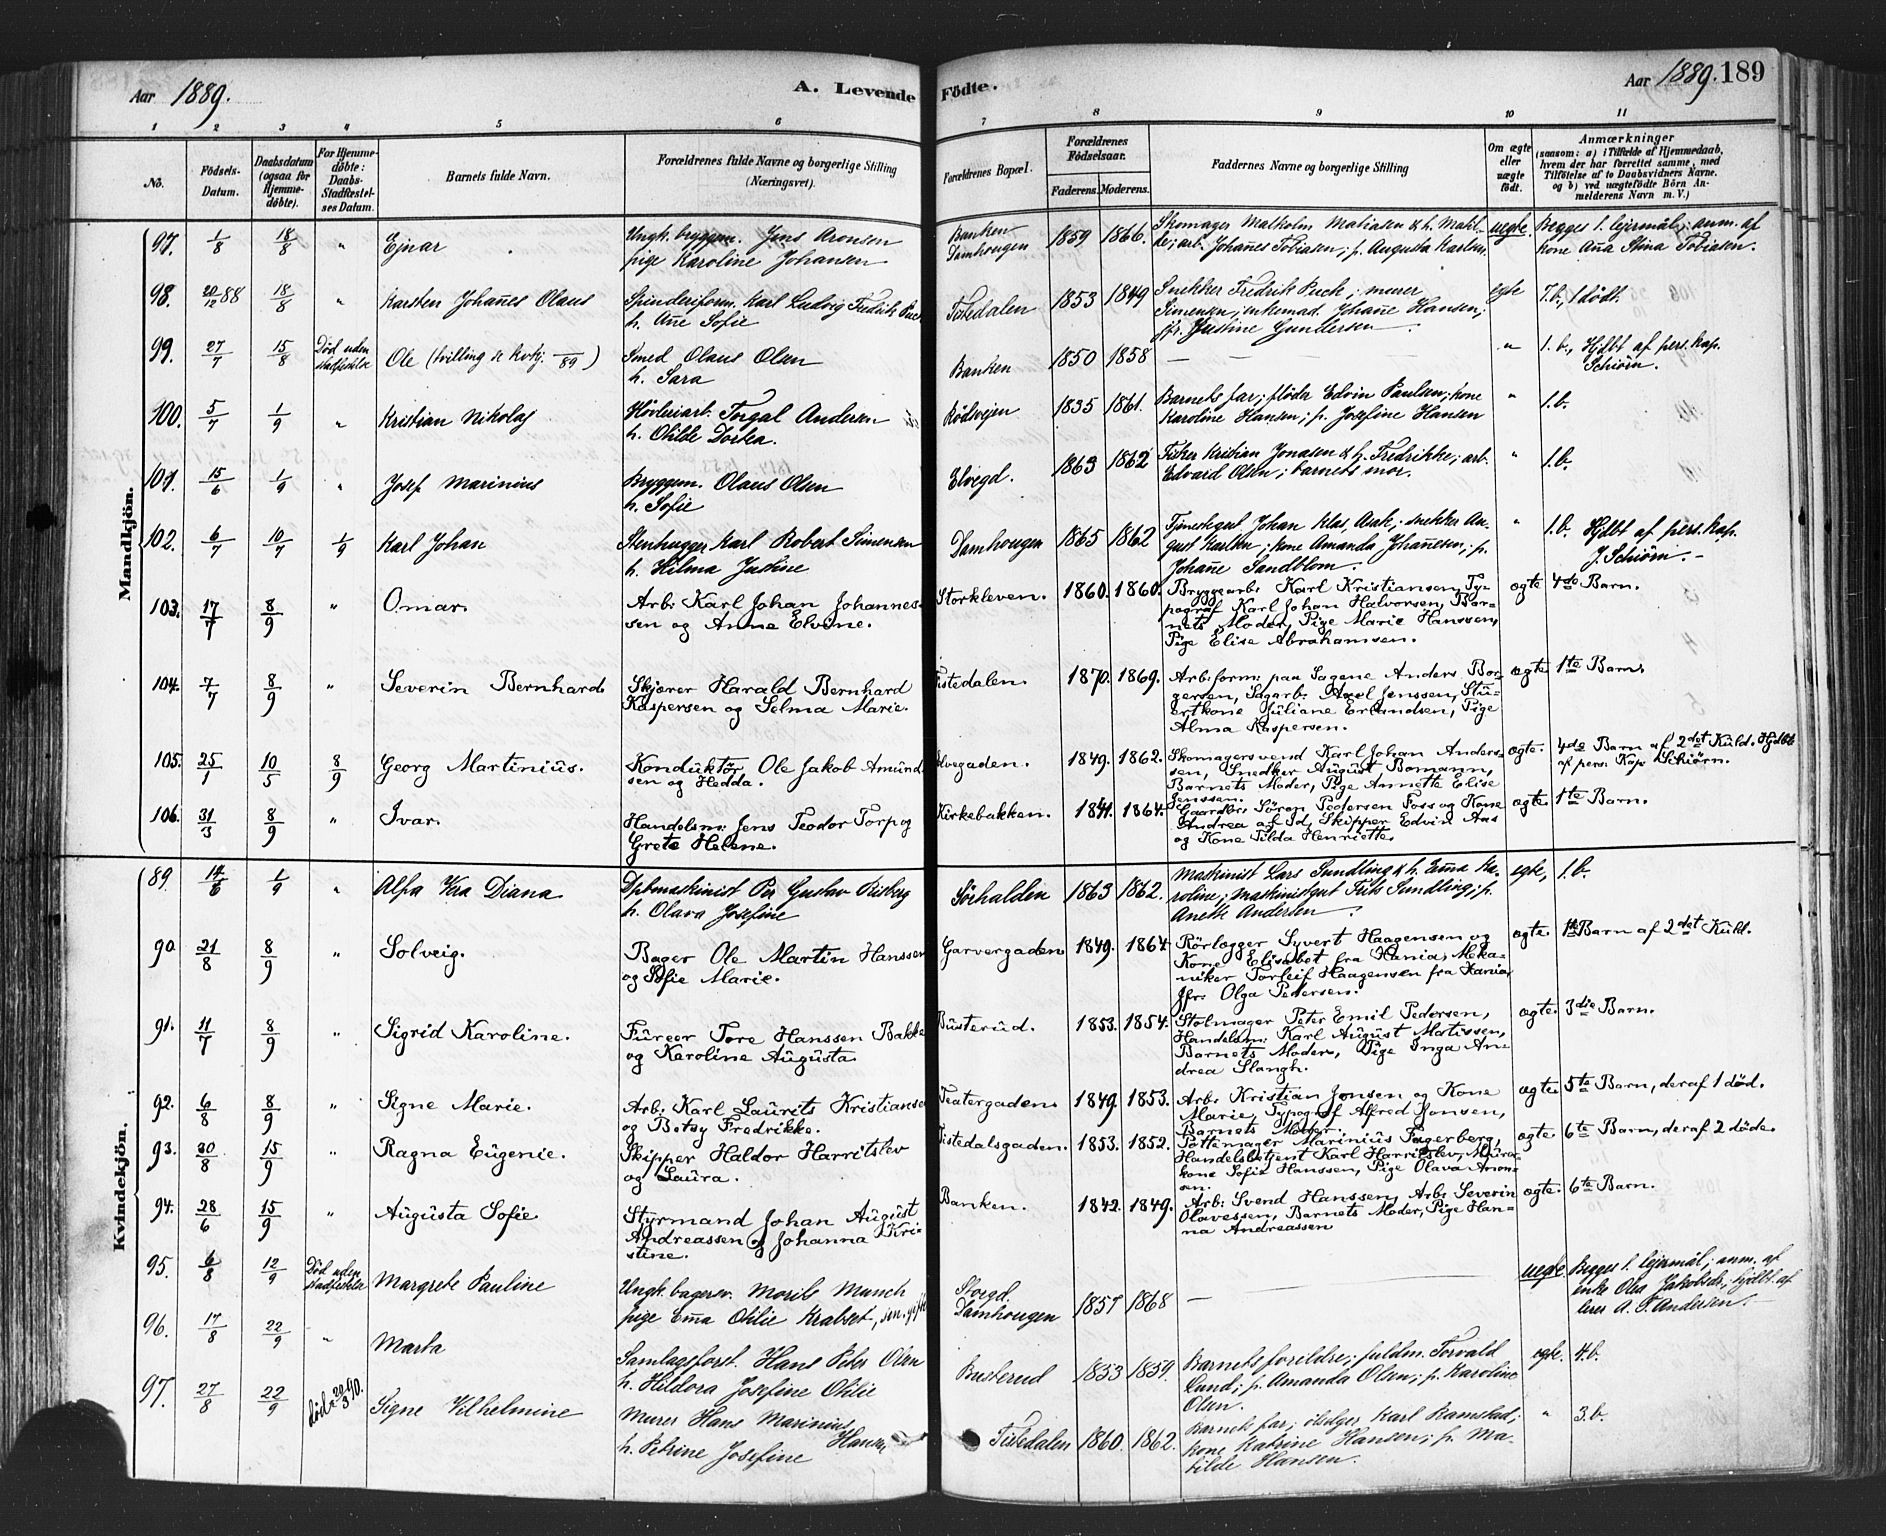 Aar 1889.
A. Levende Fødte.
Aar 1889. 189
1 2 3 4 5 6 7 8 9 10 11
No.
Fødsels-Datum.
Daabsdatum (ogsaa for Hjemme-døbte).
For Hjemme-døbte: Daabs-Stadfæstel-ses Datum.
Barnets fulde Navn.
Forældrenes fulde Navne og borgerlige Stilling (Næringsvei).
Forældrenes Bopæl.
Forældrenes Fødselsaar.
Faderens. Moderens.
Faddernes Navne og borgerlige Stilling
Om ægte eller uægte født.
Anmærkninger
(saasom: a) i Tilfælde af Hjemmedaab, hvem der har forrettet samme, med Tilføielse af to Daabsvidners Navne. og b) ved uægtefødte Børn An-melderens Navn m. V.)
Mandkjøn.
97. 1/8 18/8 " Ejnar
Ungk. bryggem. Jens Aronsen
pige Karoline Johansen
Banken
Damhougen 1859 1866.
Skomager Malkolm Matiasen & h. Matil-
de; arb. Johañes Tobiasen; p. Augusta Karlsen
uegte. Begges 1. lejermål; anm. af
kone Aña Stina Tobiasen.
98. 20/12 88 18/8 " Karsten Johañes Olaus
Spinderiform. Karl Ludvig Fredrik Puck
h. Añe Sofie
Tistedalen 1853 1849
Snekker Fredrik Puck; murer
Simensen; enkemad. Johañe Hansen;
jfr. Justine Gundersen.
egte 7. b., 1 dødt.
99. 27/7 15/8 Død uden stadfestelse Ole (tvilling se kvkj. /89)
Smed Olaus Olsen
h. Sara
Banken 1850 1858 — —
" 1. b., Hjdbt af pers. kap.
Schiørn.
100. 5/7 1/9 " Kristian Nikolaj
Høvleriarb. Torgal Andersen
h. Otilde Dortea.
Rødvejen 1835 1861.
Barnets far; fløder Edvin Paulsen; kone
Karoline Hansen; p. Josefine Hansen
" 1. b.
101. 15/6 1/9 " Josef Marinius
Bryggem. Olaus Olsen
h. Sofie
Elvegd. 1863 1862
Fisker Kristian Jonasen & h. Fredrikke; arb.
Edvard Olsen; barnets mor.
" 1. b.
102. 6/7 10/7 1/9 Karl Johan
Stenhugger Karl Robert Simensen
h. Hilma Justine
Damhougen 1865 1862
Tjenestegut Johan Klas, Ank.; snekker Au-
gust Karlsen; kone Amanda Johañesen; p.
Johañe Sandblom.
" 1. b. Hjdbt af pers. kap.
J. Schiørn. –
103. 17/7 8/9 " Omar.
Arb: Karl Johan Johannes-
sen og Anna Elvine.
Storkleven. 1860. 1860.
Bryggearb: Karl Kristiansen, Ty-
pograf Karl Johan Halvorsen, Bar-
nets Moder, Pige Marie Hanssen,
Pige Elise Abrahamsen.
ægte 4de Barn.
104. 7/7 8/9 " Severin Bernhard.
Skjærer Harald Bernhard
Kaspersen og Selma Marie.
Tistedalen. 1870. 1869.
Arb:form: paa Sagene Anders Bor-
gersen, Sagarb: Axel Jenssen, Stü-
ertkone Jüliane Erlandsen, Pige
Alma Kaspersen.
ægte 1te Barn.
105. 25/1 10/5 8/9 Georg Martiniüs.
Konduktør Ole Jakob Amünd
sen og Hedda.
Elvegaden. 1849. 1862.
Skomagersvend Karl Johan Anders-
sen, Snedker August Bomann,
Barnets Moder, Pige Annette Elise
Jenssen.
ægte. 4de Barn af 2det Küld. Hjdbt
af pers: Kap: Schiørn.
106. 31/3 8/9 " Ivar.
Handelsm: Jens Teodor Torp og
Grete Helene.
Kirkebakken. 1841. 1864.
Gaardbr: Søren Pedersen Foss og Kone
Andrea af Id, Skipper Edvin Aas
og Kone Tilda Henriette.
ægte. 1te Barn.
Kvindekjøn.
89. 14/6 1/9 " Alfa Vera Diana
Dpbmaskinist Per Gustav Risberg
h. Olava Josefine
Sørhalden 1863 1862.
Maskinist Lars Sundling & h. Emma Ka-
roline; maskinistgut Frits Sundling; p.
Anette Andersen.
egte, 1. b.
90. 21/8 8/9 " Solveig.
Bager Ole Martin Hanssen
og Sofie Marie.
Garvergaden 1849. 1864.
Rørlægger Syvert Haagensen og
Kone Elisabet fra Kania, Meka-
niker Torleif Haagensen fra Kania,
Jfr: Olga Pedersen.
ægte. 1te Barn af 2det Küld.
91. 11/7 8/9 " Sigrid Karoline.
Fürer Tore Hanssen Bakke
og Karoline Augüsta.
Büsterüd. 1853. 1854.
Stolmager Peter Emil Pedersen,
Handelsm: Karl Aügüst Matissen,
Barnets Moder, Pige Inga An-
drea Slangh.
ægte. 3die Barn.
92. 6/8 8/9 " Signe Marie.
Arb: Karl Laürits Kristiansen
og Betsy Fredrikke.
Teatergaden. 1849. 1853.
Arb: Kristian Jonsen og Kone
Marie, Typograf Alfred Jonsen,
Barnets Moder.
ægte 5te Barn, deraf 1 død.
93. 30/8 15/9 " Ragna Eügenie.
Skipper Haldor Harritslev
og Laüra.
Tistedalsgaden. 1853. 1852.
Pottemager Mariniüs Fagerberg,
Handelsbetjent Karl Harritslev, Mürer-
kone Sofie Hanssen, Pige Olava Amon-
sen.
ægte. 6te Barn, deraf 2 døde.
94. 28/6 15/9 " Augüsta Sofie.
Styrmand Johan Aügüst
Andreassen og Johanna Kri-
stine.
Banken. 1842. 1849.
Arb: Svend Hanssen, Arb: Severin
Olavessen, Barnets Moder, Pige Han-
na Andreassen
ægte. 6te Barn.
95. 6/8 12/9 Død uden stadfestelse Margrete Pauline
Ungk. bagersv. Morits Munch
pige Emma Otilie Krabset,
Storgd.
Damhougen 1857 1868 — —
uegte Begges 1. lejermål; anm. af
enke Olea Jakobsdr.; hjdbt. af
lærer A. T. Andersen.
96. 17/8 22/9 " Marta
Samlagsforst. Hans Peter Olsen
h. Hildora Josefine Otilie
Busterud 1853 1859.
Barnets foreldre; fuldm. Torvald
Lund; p. Amanda Olsen; p. Karoline
Olsen.
egte. 4. b.
97. 27/8 22/9 død 20/3 90. Signe Vilhelmine
Murer Hans Marinius Hansen
h. Petrine Josefine
Tistedalen 1860. 1862.
Barnets far; ølselger Karl Ramstad;
kone Katrine Hansen; p. Ma-
tilde Hansen.
" 3. b.